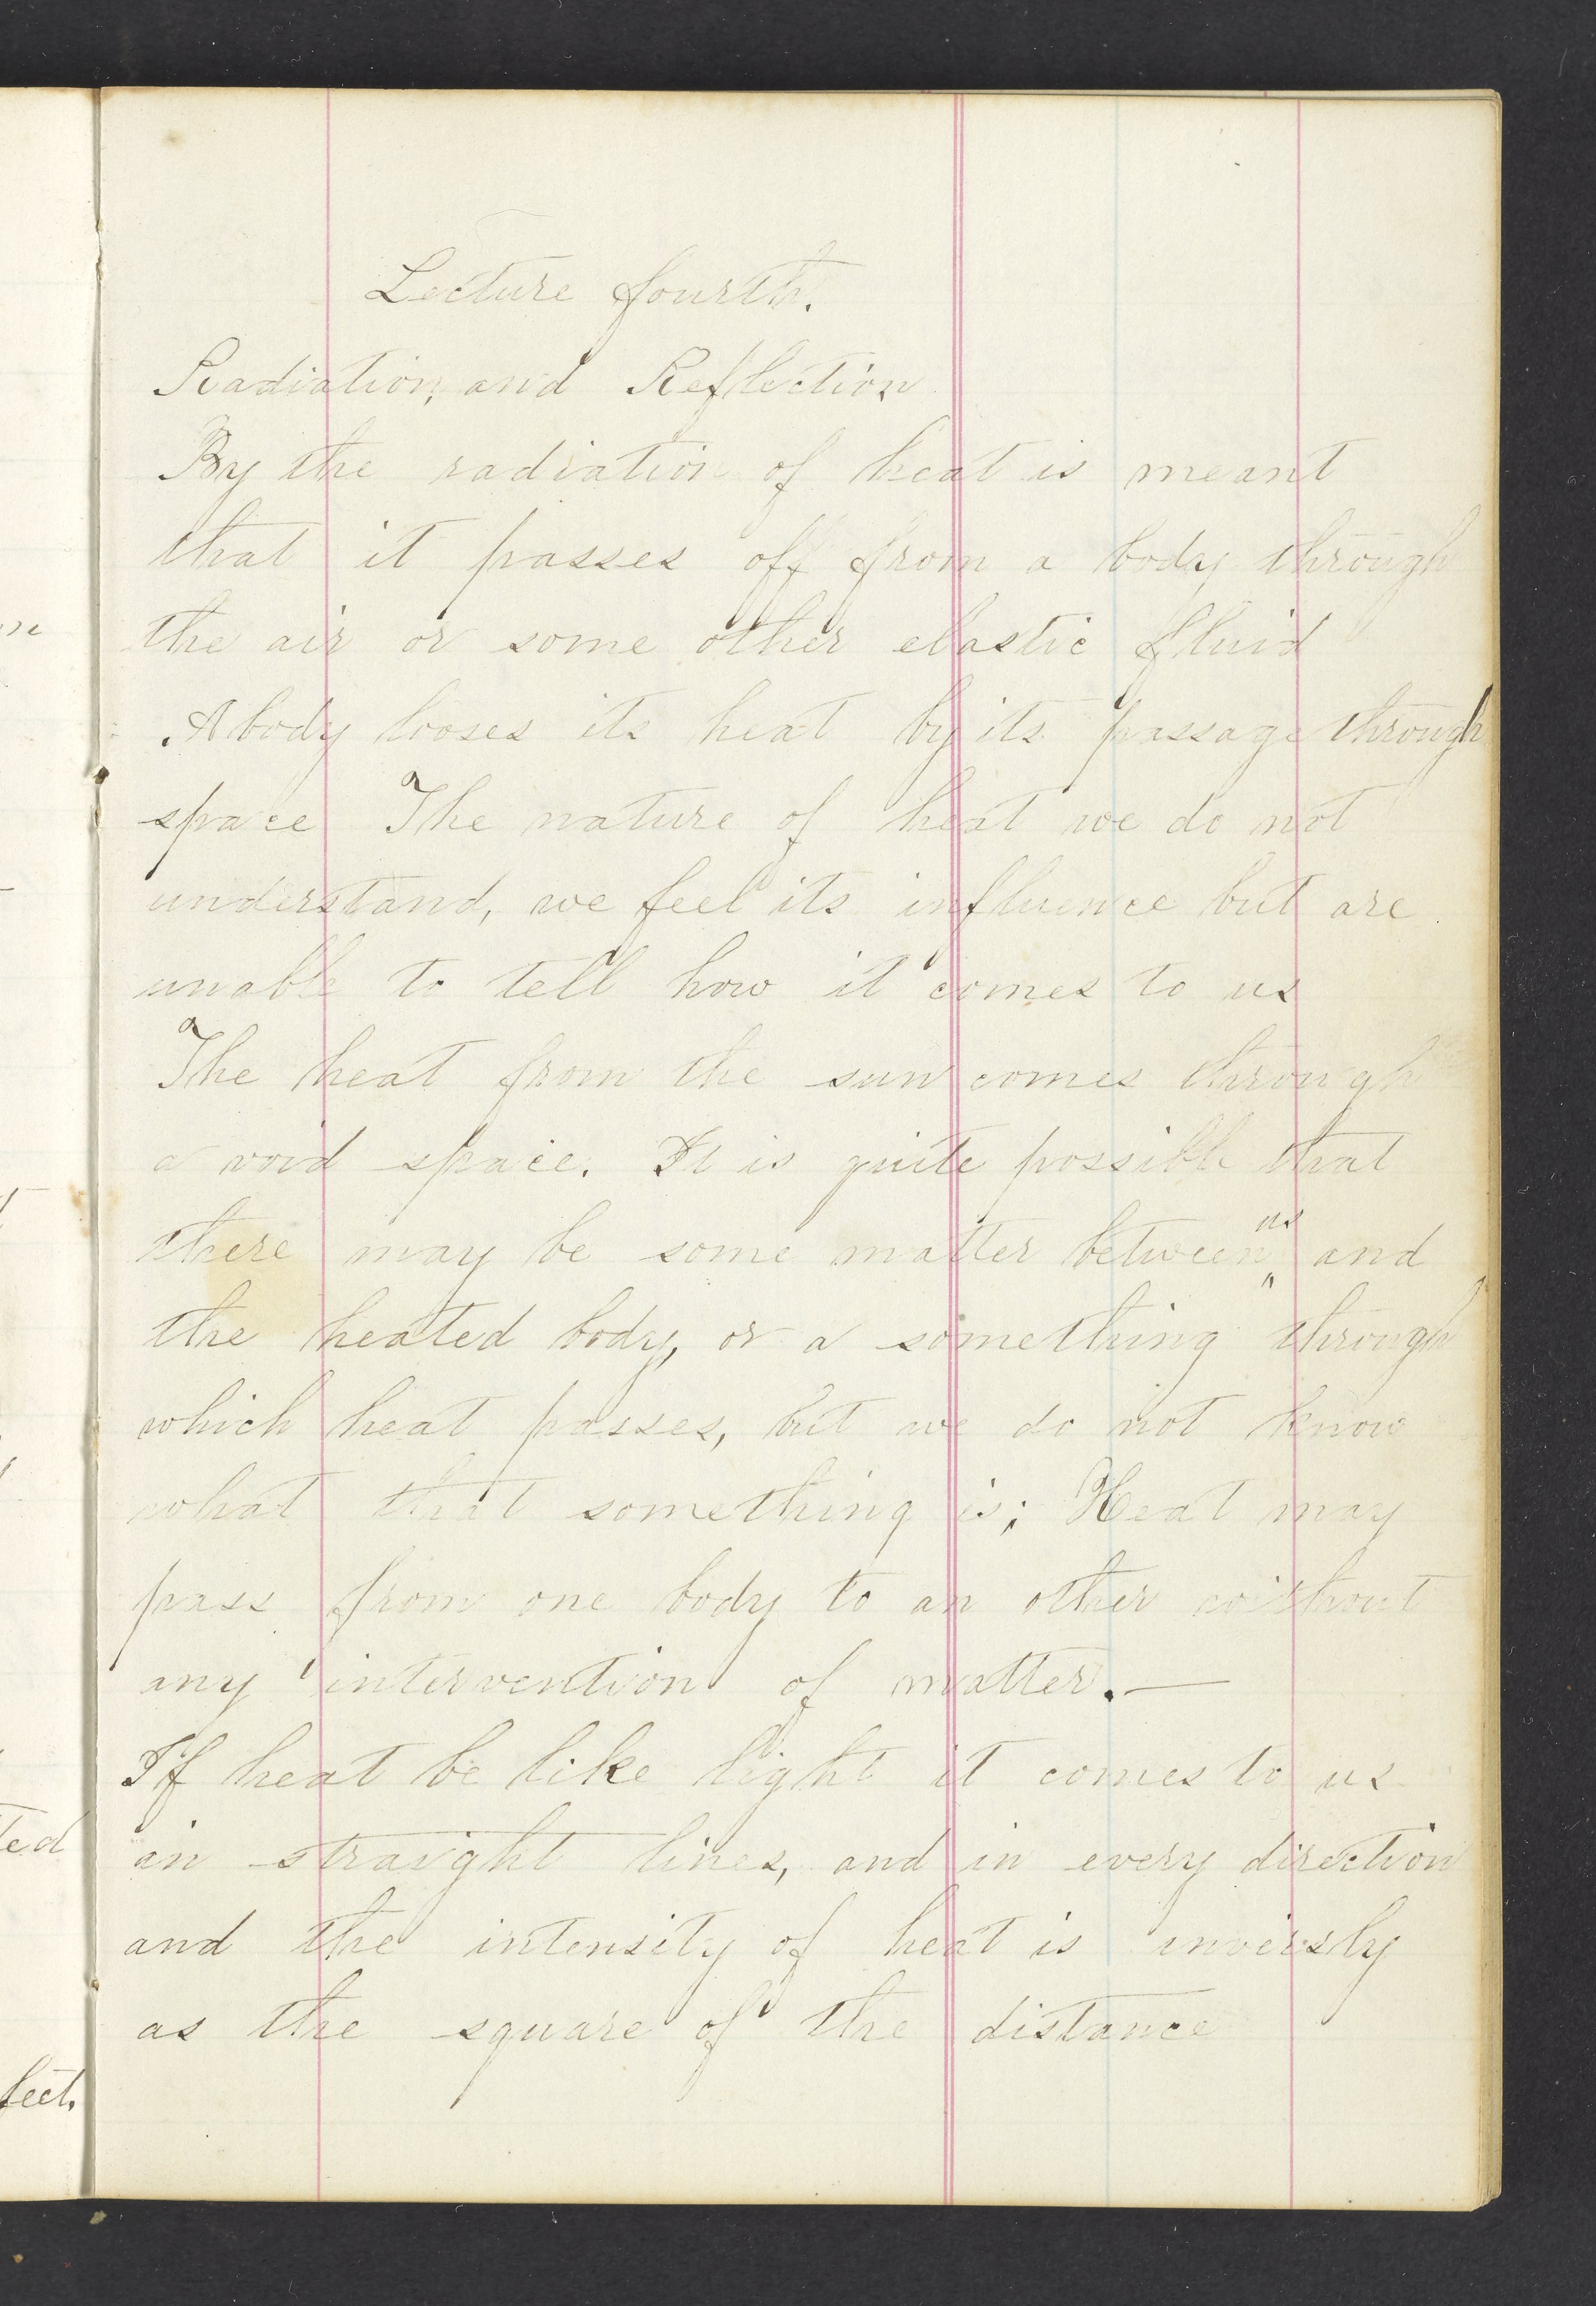 Lecture fourth.
Radiation, and Reflection
By the radiation of heat is meant
that it passes off from a body through
the air or some other elastic fluid
A body looses its heat by its passage through
space The nature of heat we do not
understand, we feel its influence but are
unable to tell how it comes to us
The heat from the sun comes through
a void space. It is quite possible that
us
there may be some matter between " and
the heated body, or a something through
which heat passes, but we do not know
what that something is; Heat may
pass from one body to an other without
any intervention of matter.—
If heat be like light it comes to us
in straight lines, and in every direction
and the intensity of heat is inversly
as the square of the distance
ted
feet.